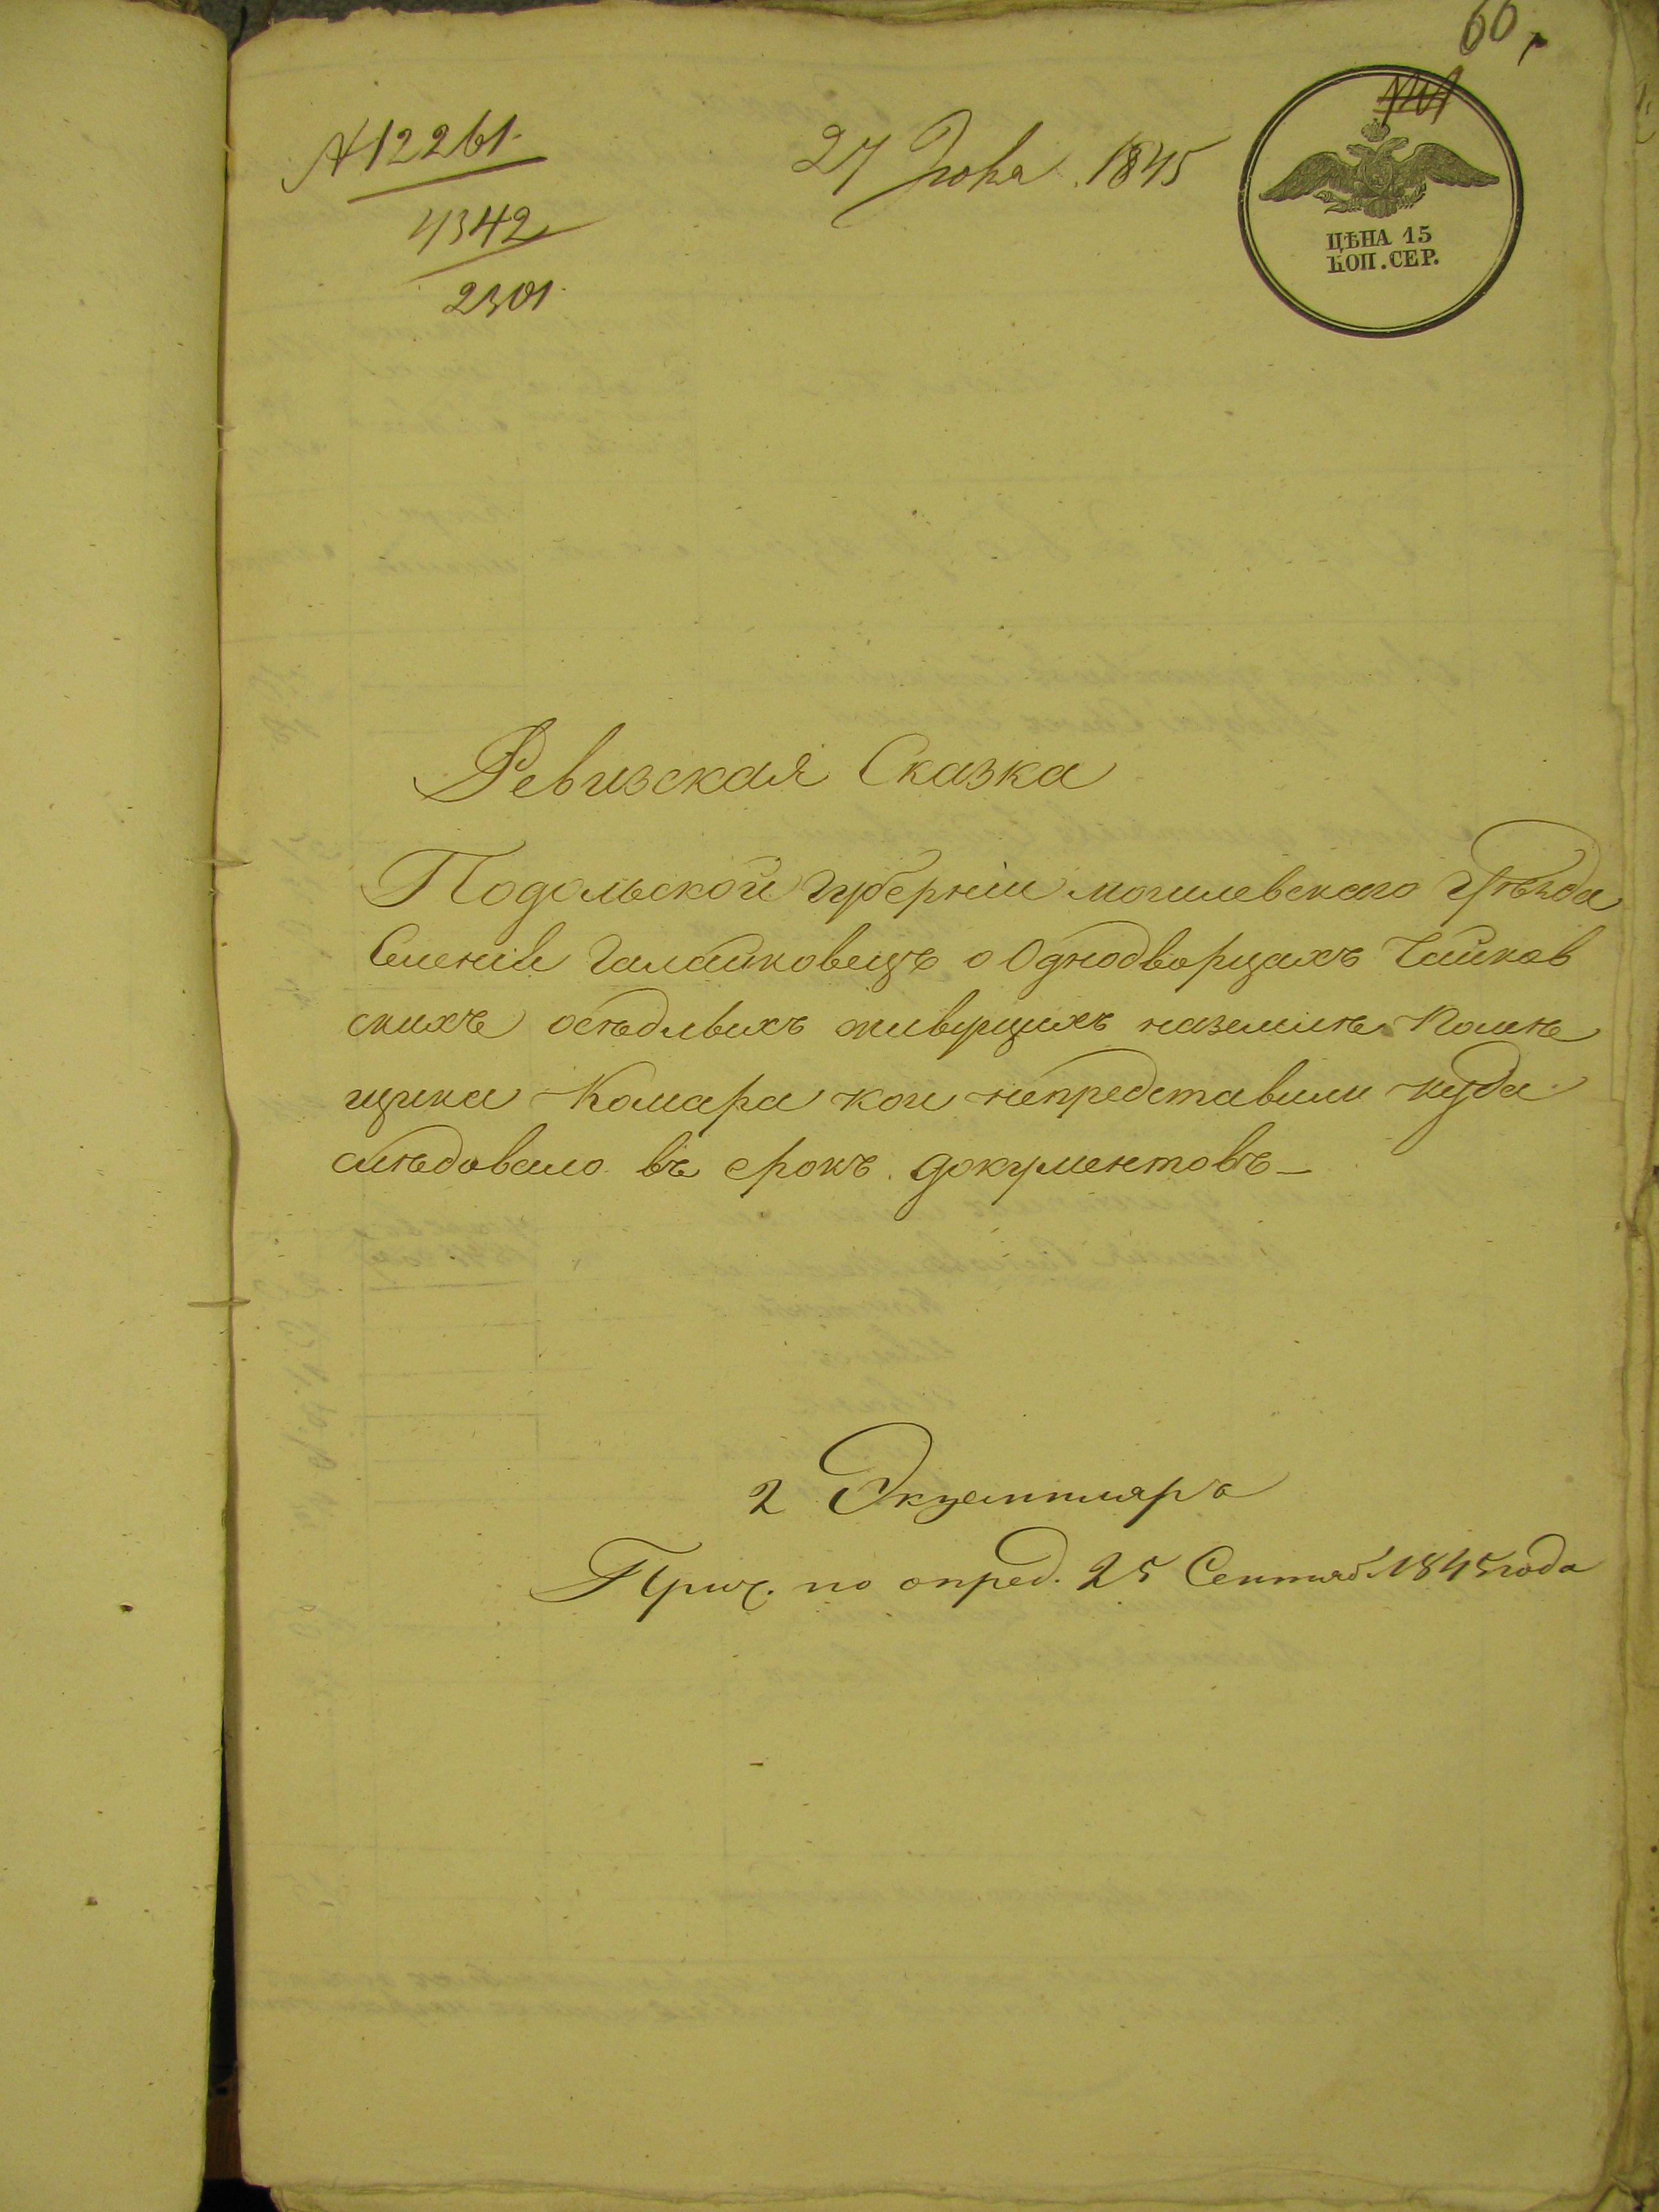 66.
№ 12261.
4342
2301.
27 1845
ЦѢНА 15
КОП. СЕР.
Ревизская Сказка
Подольской губерніи могилевскаго уѣзда
Селенія Галайковецъ о Однодворцахъ Чайков
скихъ осѣдлыхъ живущихъ наземлѣ Помѣ
щика Комара кои непредставили куда
слѣдовало въ срокъ документовъ—
2 Экземпляръ
Прич. по опред. 25 Сентяб. 1845 года